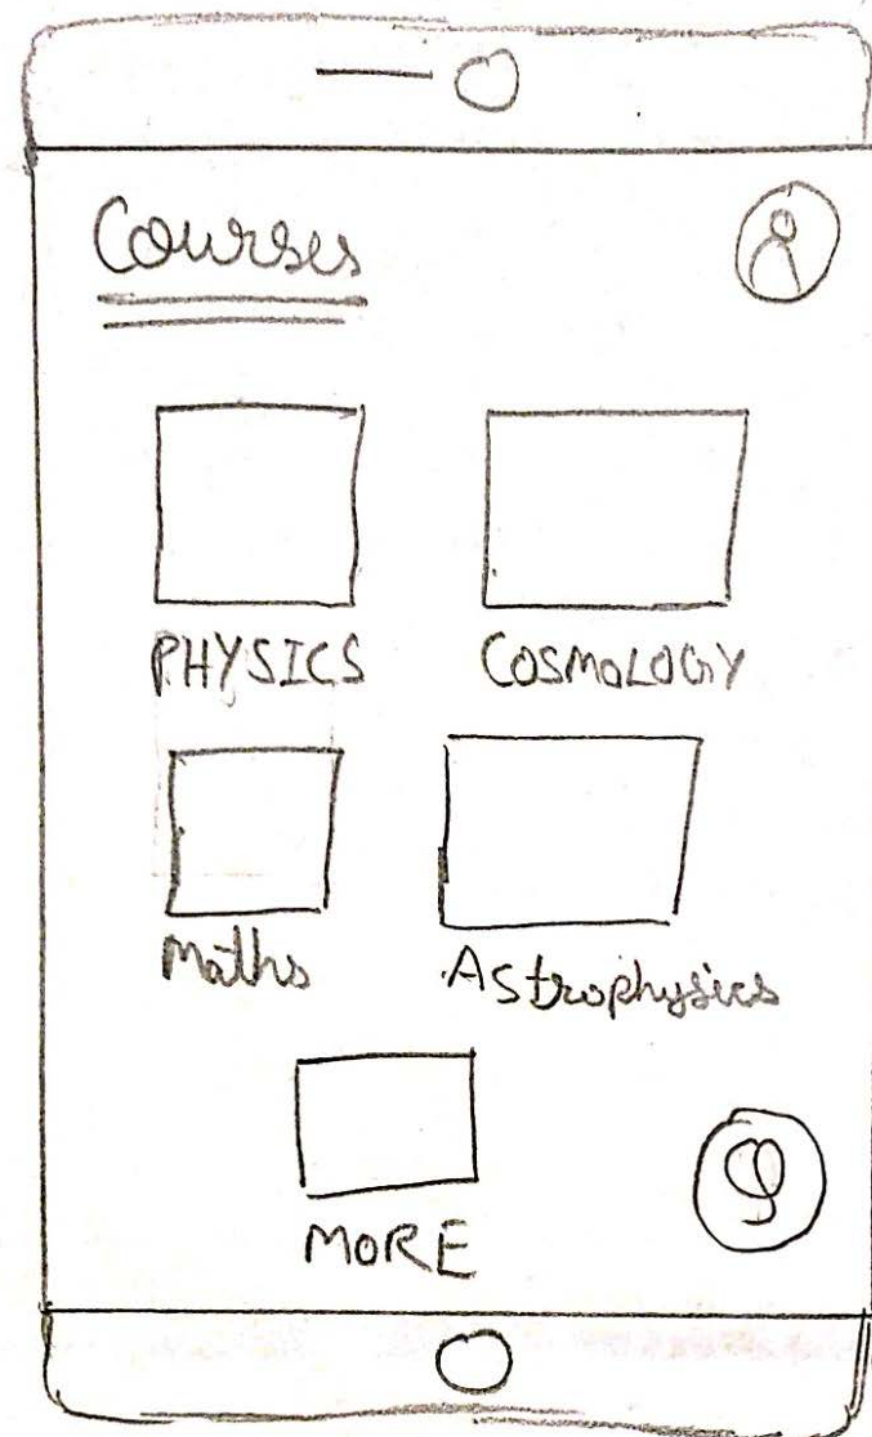 Courses
PHYSICS COSMOLOGY
Maths Astrophysics
MORE